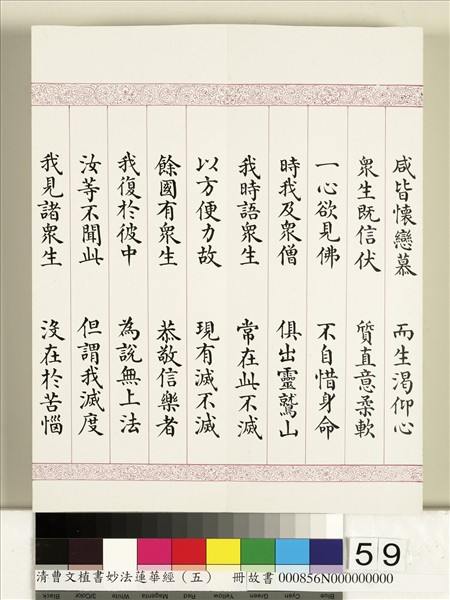 咸皆懷戀慕　而生渴仰心
眾生既信伏　質直意柔軟
一心欲見佛　不自惜身命
時我及眾僧　俱出靈鷲山
我時語眾生　常在此不滅
以方便力故　現有滅不滅
餘國有眾生　恭敬信樂者
我復於彼中　為說無上法
汝等不聞此　但謂我滅度
我見諸眾生　沒在於苦惱
59
清曹文植書妙法蓮華經（五）　冊故書 000856N000000000
Black 3/Color White Magenta Red Yellow Green Cyan Blue